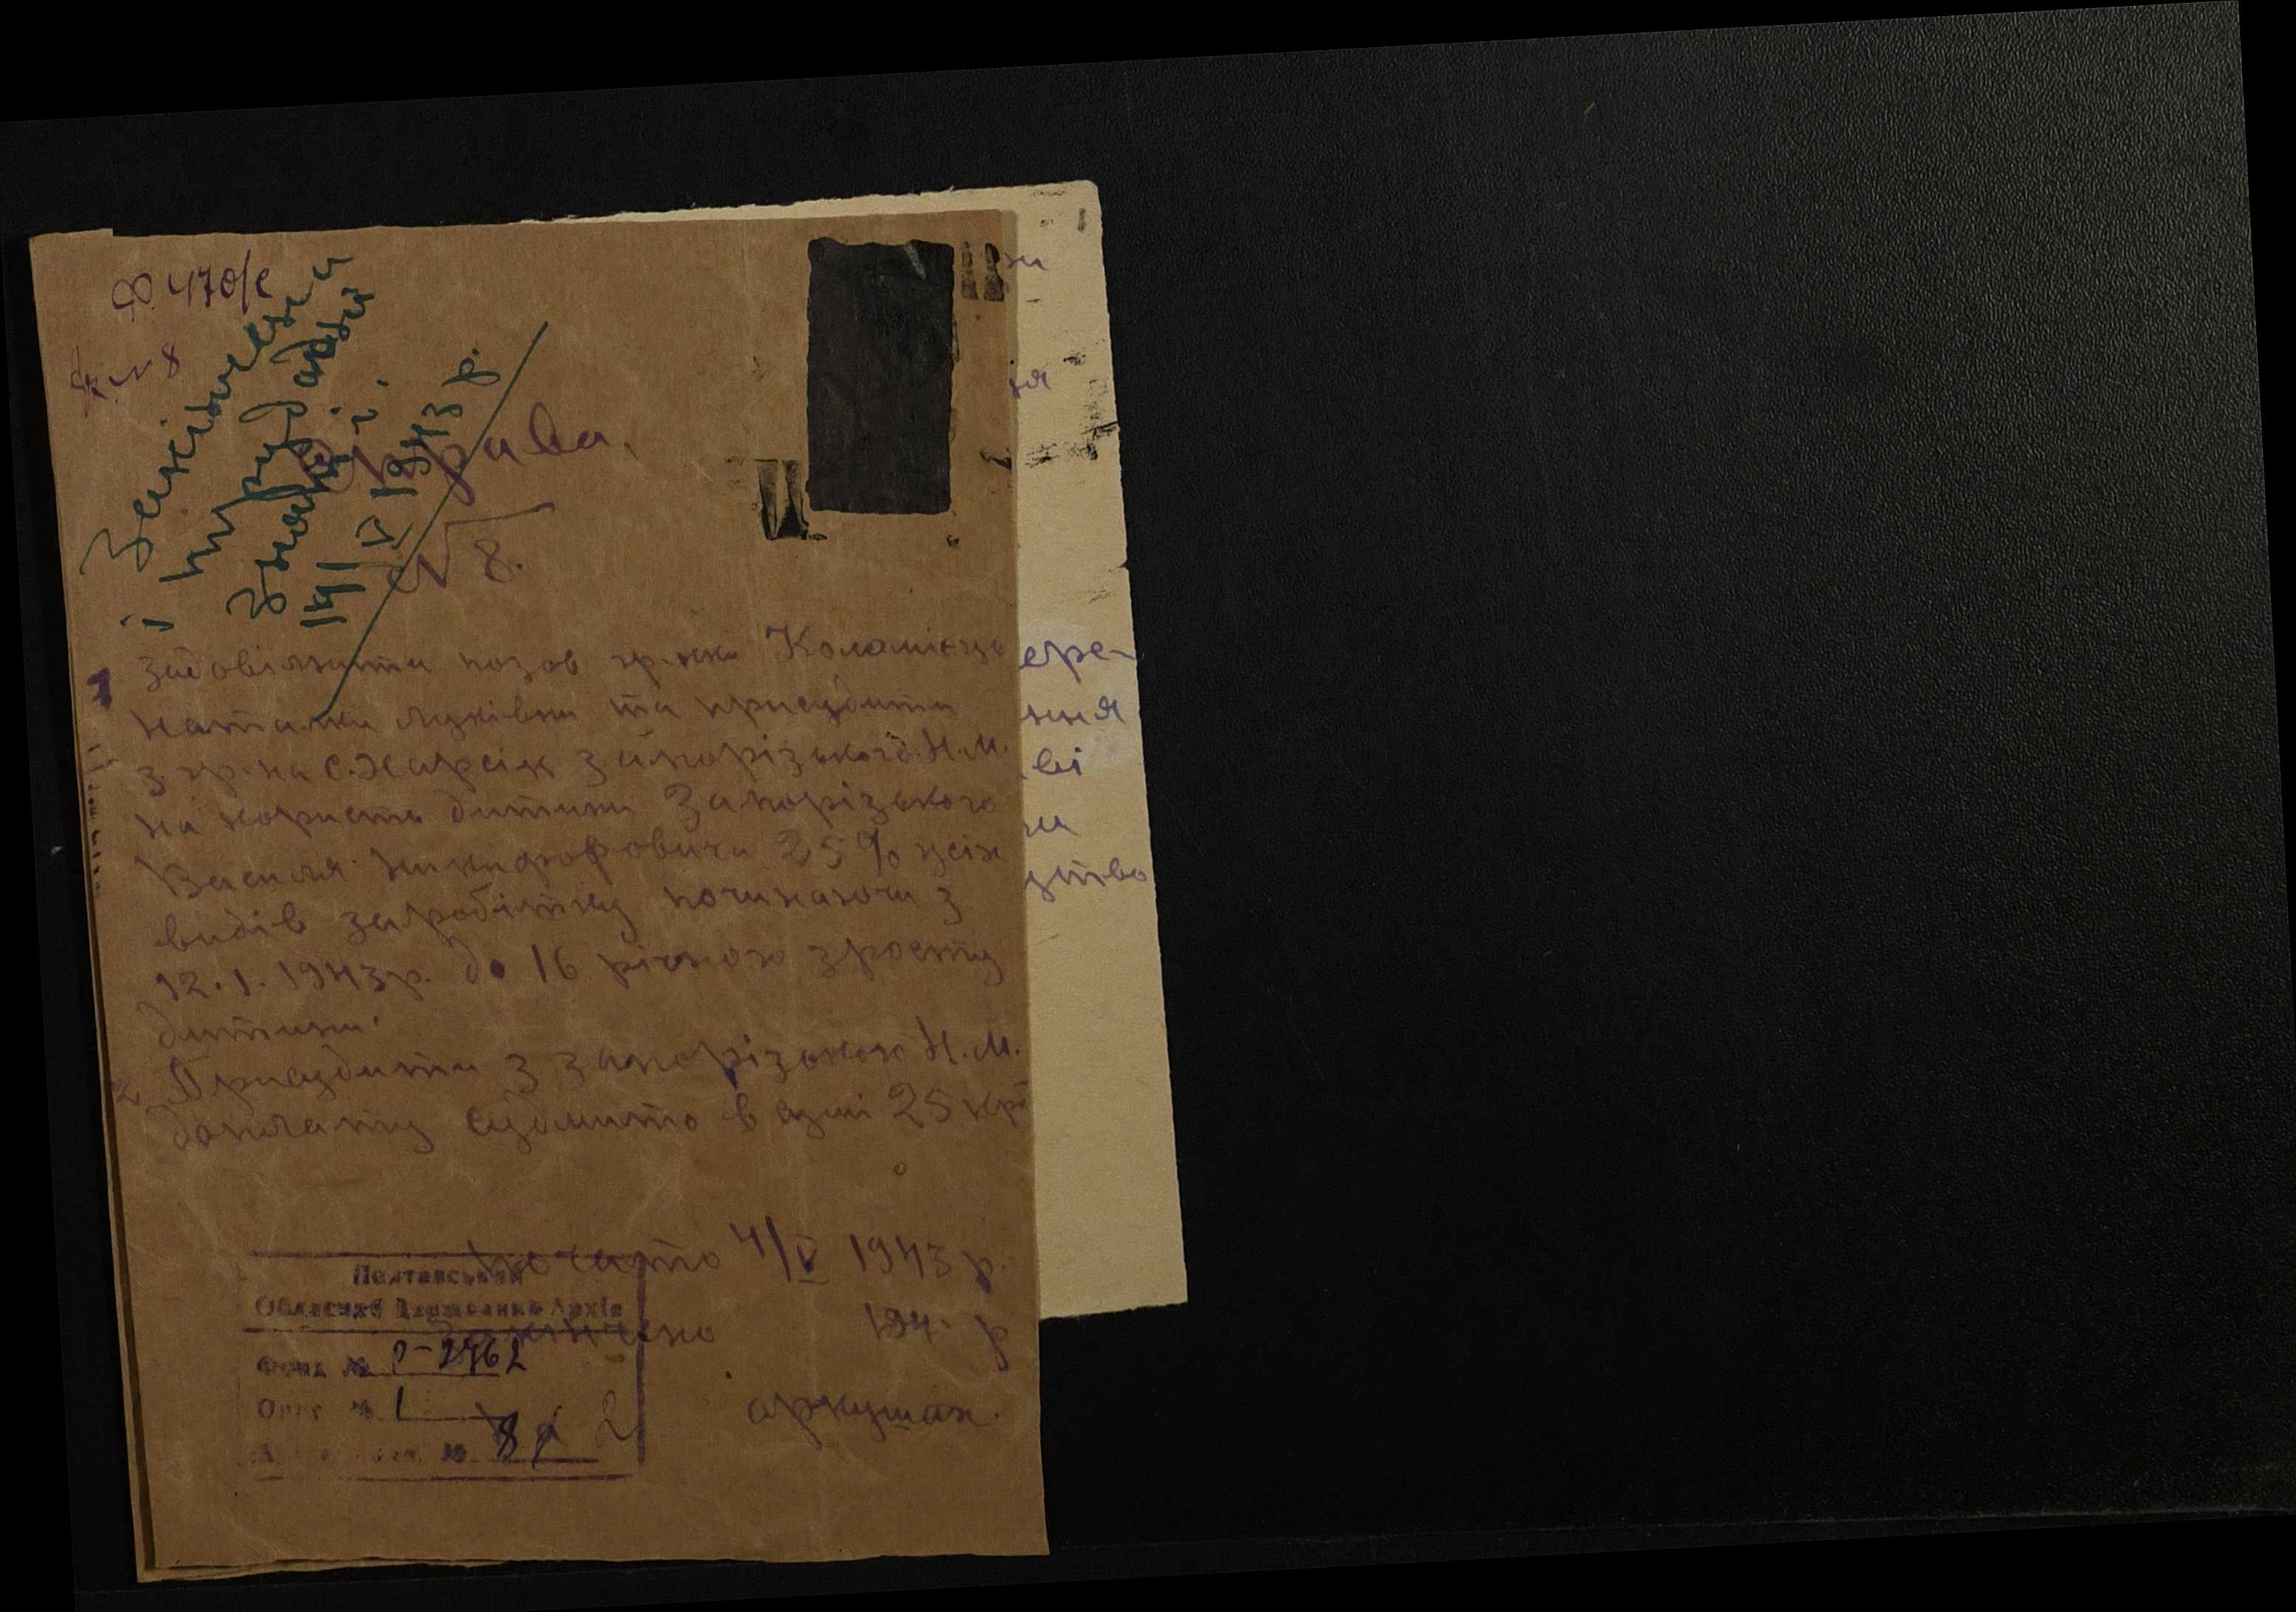 Ф 470/с
№ 8
Закінчена
і
14/V 1943 р.
Справа.
№ 8.
1 Задовільнити позов гр-нки Коломієць
Наталки Луківни та присудити
з гр-на с. Запорізького Н.М.
на користь дитини Запорізького
Василя Никифоровича 25% усіх
видів заробітку починаючи з
12.1.1943р. до 16 річного зросту
дитини.
2 Присудити з Запорізького Н.М.
доплату судмито в сумі 25 крб
Почато 4/V 1943 р.
Закінчено 194 р
аркушах.
Полтавський
Обласний Державний Архів
Фонд № Р-2462
Опис № 1
№ 8 2
ере-
ння
ві